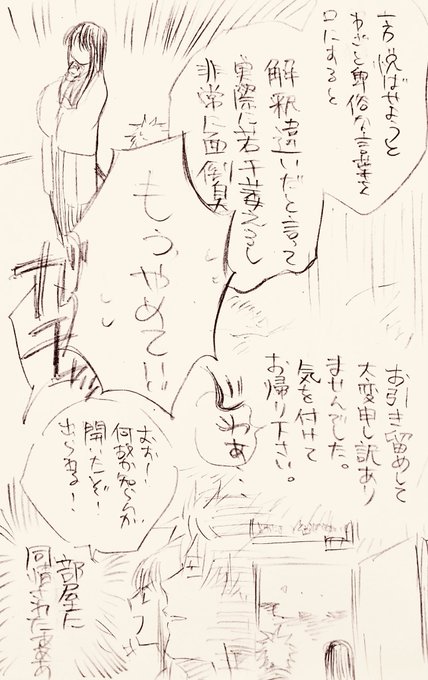 一方悦ばせようと
わざと卑俗な言葉を
口にすると
解釈違いだと言って
実際に若干萎えるし
非常に面倒臭
もうやめてい
お引き留めして
大変申し訳あり
ませんでした。
気を付けて
お帰り下さい。
うわぁ‥
おお!!
何故か知らんが
開いたぞ!
出られる!
部屋に
同情された